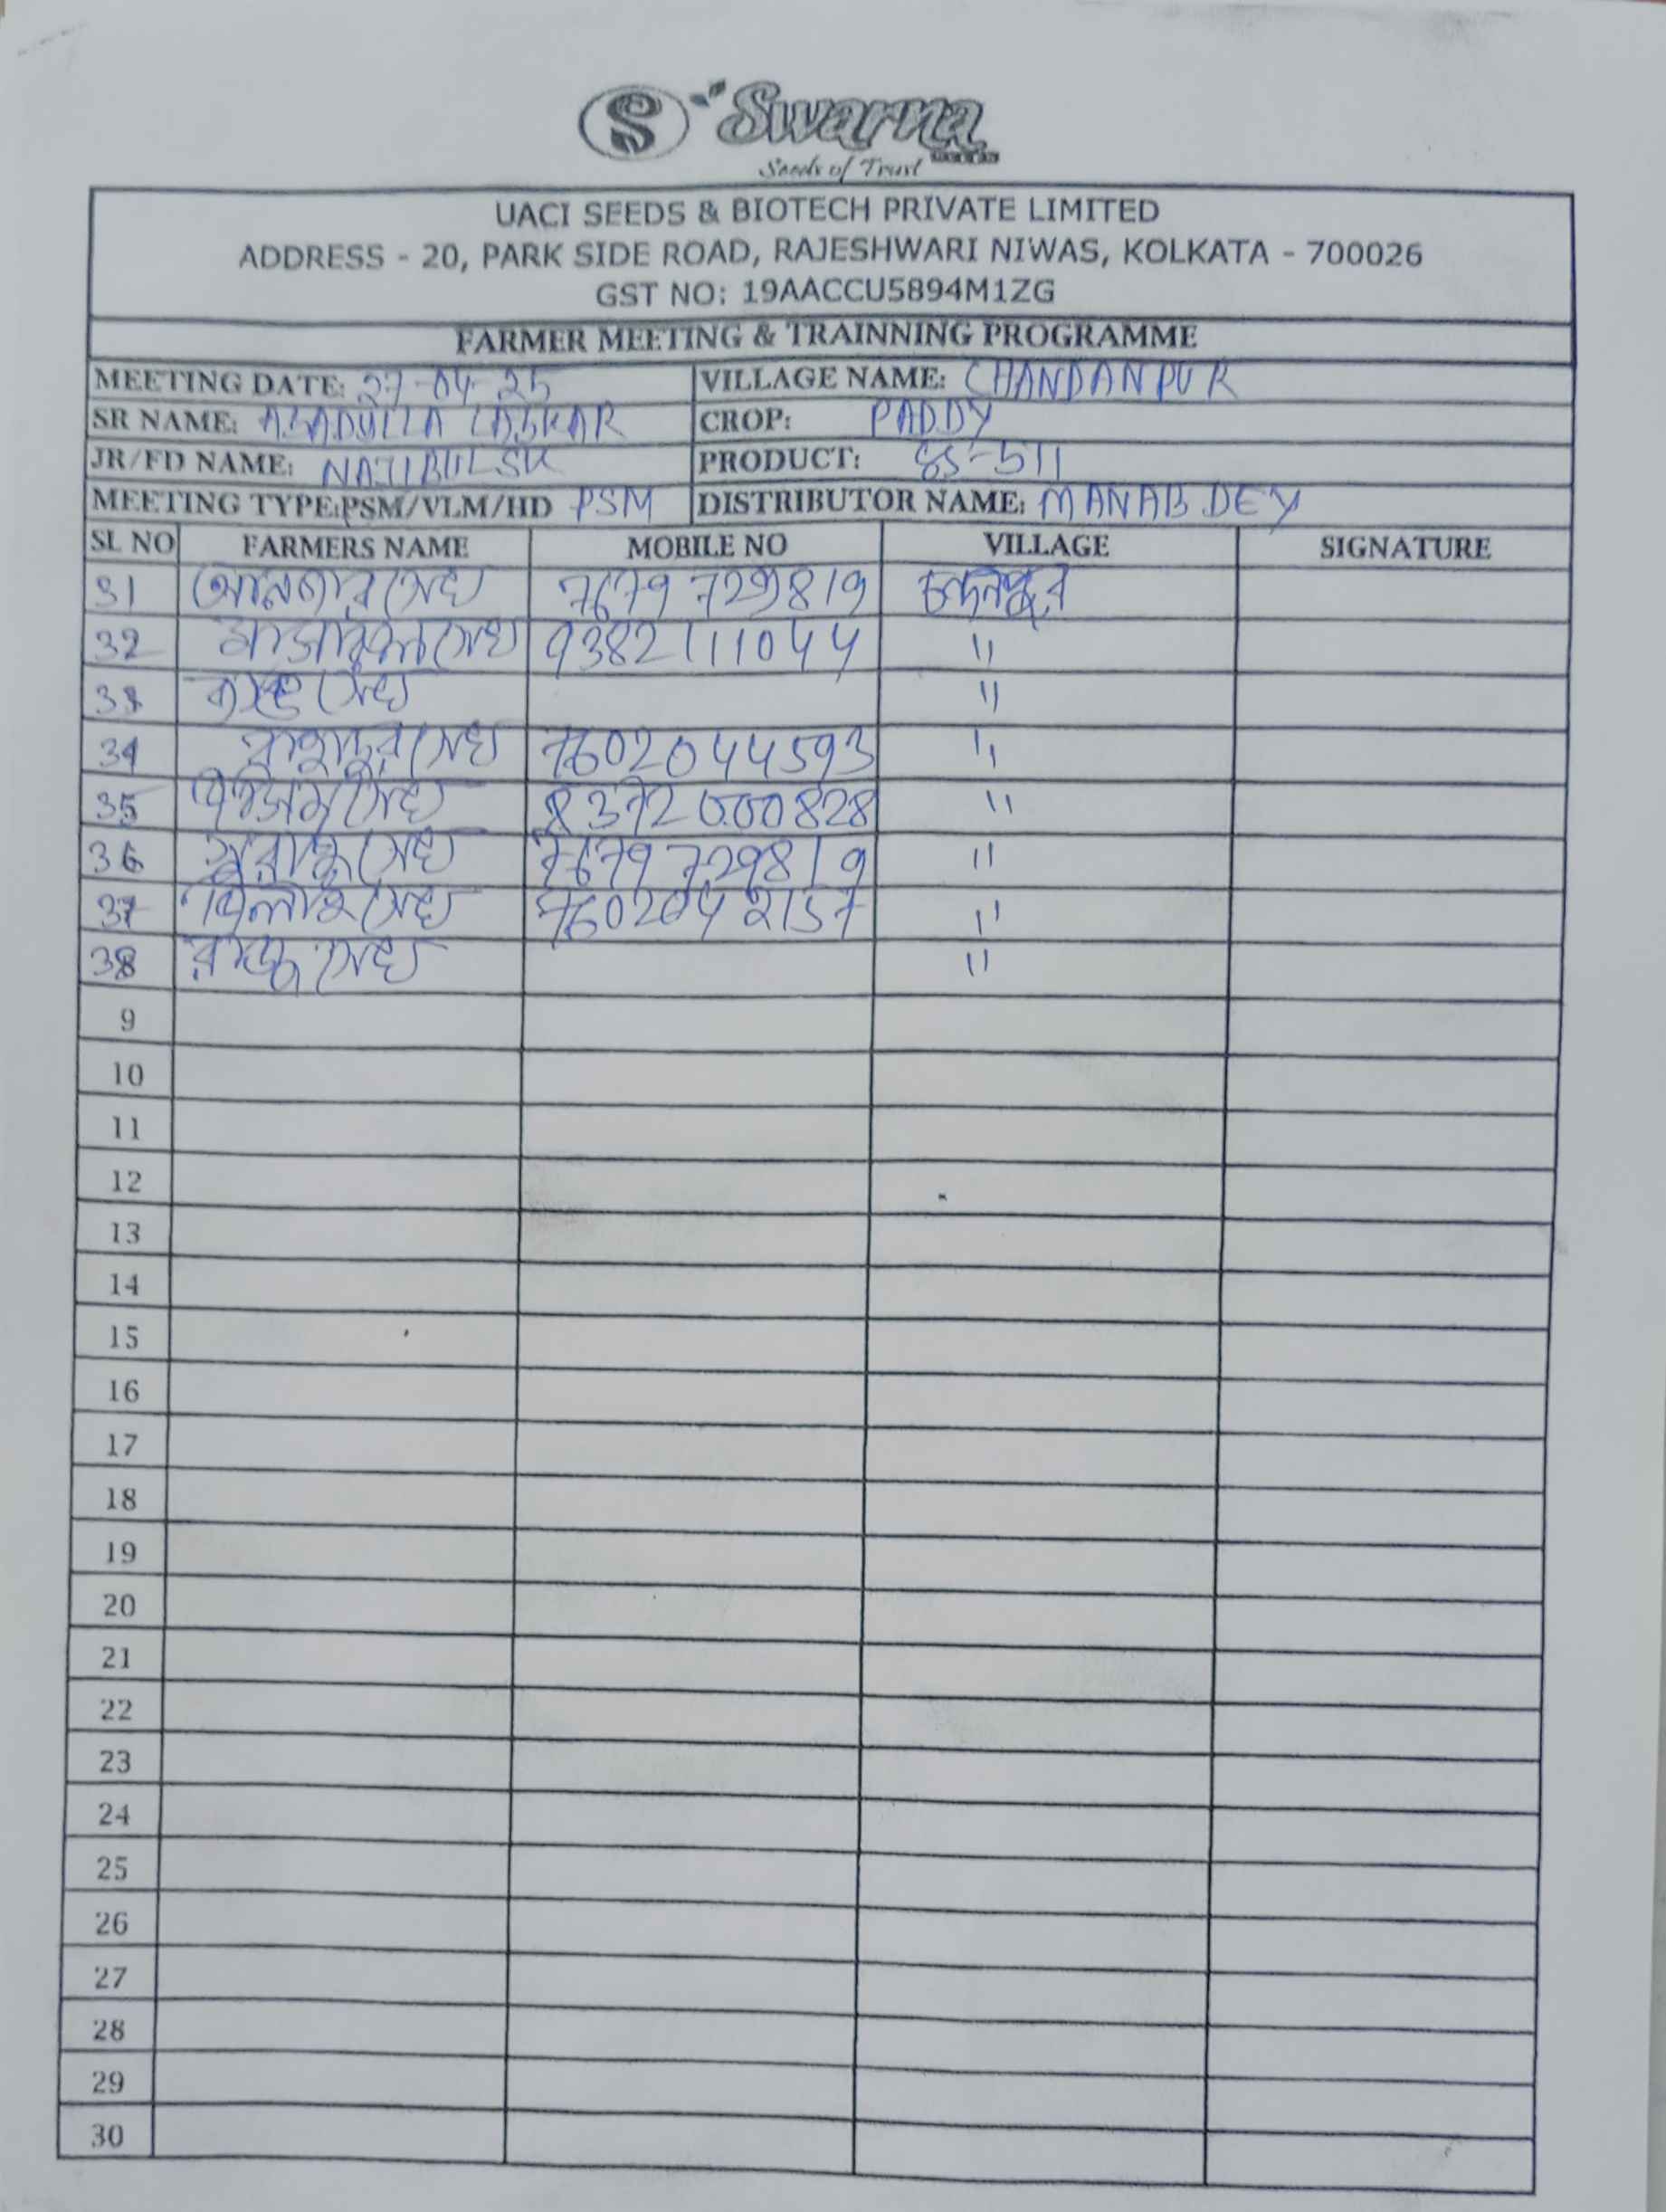 S Swarna
Seeds of Trust
UACI SEEDS & BIOTECH PRIVATE LIMITED
ADDRESS - 20, PARK SIDE ROAD, RAJESHWARI NIWAS, KOLKATA - 700026
GST NO: 19AACCU5894M1ZG
FARMER MEETING & TRAINNING PROGRAMME
MEETING DATE: 27-04-25 VILLAGE NAME: CHANDANPUR
SR NAME: ASADULLA LASKAR CROP: PADDY
JR/FD NAME: NAJIBUL SK PRODUCT: SS-511
MEETING TYPE:PSM/VLM/HD PSM DISTRIBUTOR NAME: MANAB DEY
SL NO FARMERS NAME MOBILE NO VILLAGE SIGNATURE
31 সেখ 7679 729819 চন্দনপুর
32 সেখ 9382111044 "
33 সেখ "
34 সেখ 7602044593 "
35 সেখ 8372000828 "
36 সেখ 7679 729819 "
37 সেখ 7602042157 "
38 রাজু সেখ "
9
10
11
12
13
14
15
16
17
18
19
20
21
22
23
24
25
26
27
28
29
30